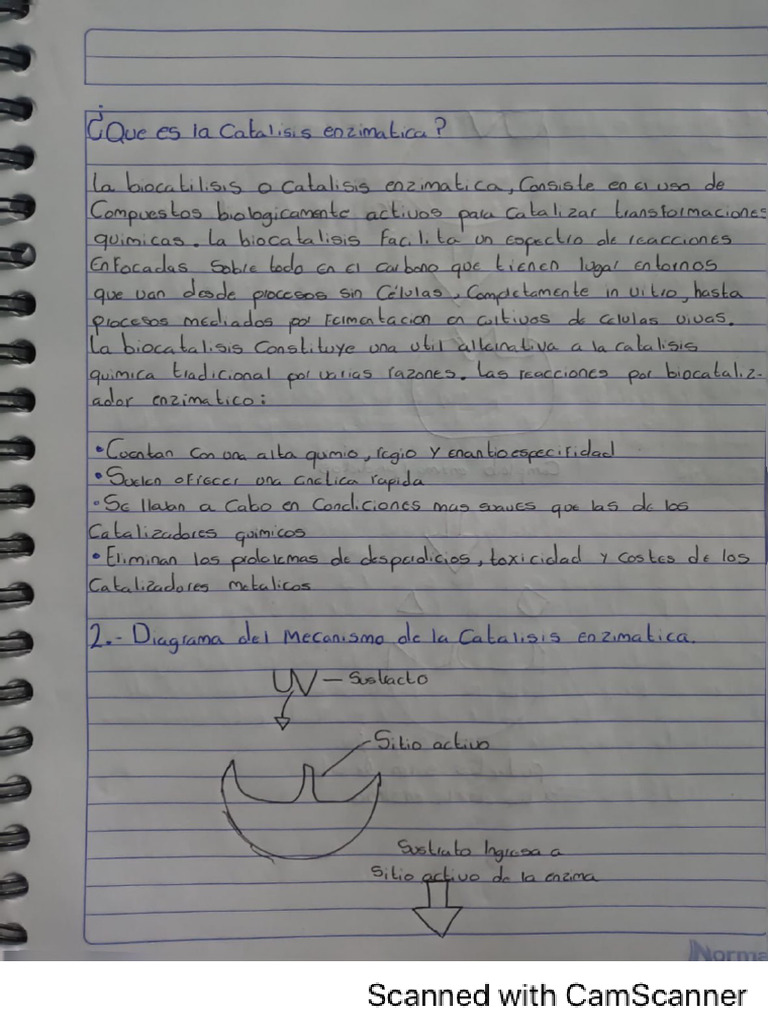 ¿Que es la Catalisis enzimatica?
La biocatilisis o Catalisis enzimatica, Consiste en el uso de
Compuestos biologicamente activos para Catalizar transformaciones
quimicas. La biocatalisis Facilita un espectro de reacciones
Enfocadas Sobre todo en el carbono que tienen lugar entornos
que van desde procesos sin Células, Completamente in vitro, hasta
procesos mediados por Fermentacion en cultivos de celulas vivas.
La biocatalisis Constituye una util alternativa a la catalisis
quimica tradicional por varias razones. Las reacciones por biocataliz-
ador enzimatico:
• Cuentan con una alta qumio, regio y enantioespecifidad
• Suelen ofrecer una cinetica rapida
• Se llevan a Cabo en Condiciones mas suaves que las de los
Catalizadores quimicos
• Eliminan los problemas de desperdicios, toxicidad y costes de los
Catalizadores metalicos
2.- Diagrama del Mecanismo de la Catalisis enzimatica.
Sustracto
Sitio activo
Sustrato Ingresa a
Sitio activo de la enzima
Norma
Scanned with CamScanner